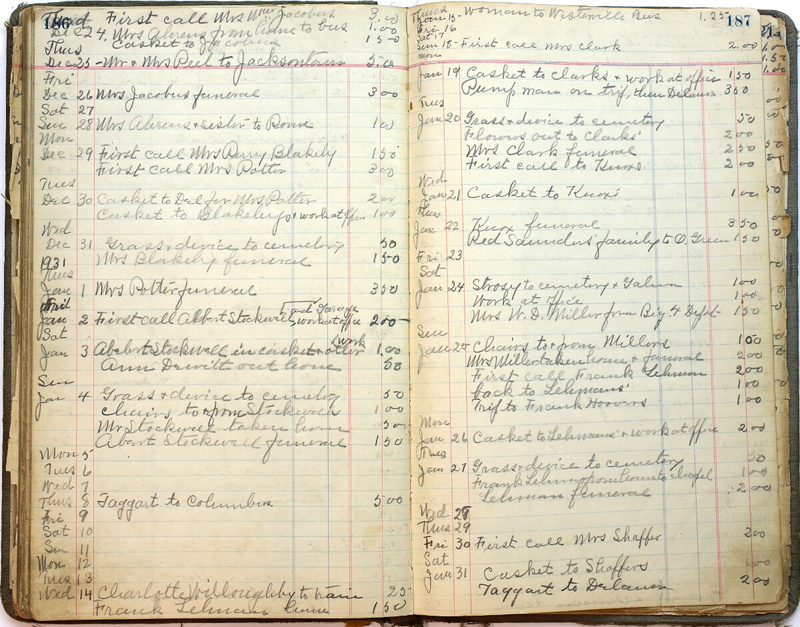 186
Wed First call Mrs Wm Jacobus 3.00
Dec 24. Mrs Ahrens from Anne to bus 1.00
Thus Casket to Jacobus 1 50
Dec 25 - Mr & Mrs Peel to Jacksontown 5.00
Fri
Dec 26 Mrs Jacobus funeral 3 00
Sat 27
Sun 28 Mrs Ahrens & sister to Rome 1 00
Mon
Dec 29 First call Mrs Perry Blakely 1 50
First call Mrs Potter 3 00
Tues
Dec 30 Casket to Del for Mrs Potter 2 00
Casket to Blakelys & work at office 1 00
Wed
Dec 31 Grass & device to cemetery 50
1931 Mrs Blakely funeral 1 50
Thus
Jan 1 Mrs Potter funeral 3 50
Fri
Jan 2 First call Albert Stockwell & work at office 2 00
and Garage work
Sat
Jan 3 Albert Stockwell in casket & other 1.00
Ann Dewitt out home 50
Sun
Jan 4 Grass & device to cemetery 50
chairs, to & from Stockwells 1 00
Mr Stockwell taken home 50
Albert Stockwell funeral 1 50
Mon 5
Tues 6
Wed 7
Thus 8 Taggart to Columbus 5 00
Fri 9
Sat 10
Sun 11
Mon 12
Tues 13
Wed 14 Charlotte Willoughby to train 25
Frank Lehman home 1 50
187
Thurs Jan 15- Woman to Westerville Bus 1.25
Fri 16
Sat 17
Sun 18 - First call Mrs Clark 2 00
Mon
Jan 19 Casket to Clarks & work at office 1 50
Pump man on trip, then Delaware 3 50
Tues
Jan 20 Grass & device to cemetery 50
Flowers out to Clarks' 2 00
Mrs Clark funeral 2 50
First call to Knox 2 00
Wed
Jan 21 Casket to Knox's 1 00
Thus
Jan 22 Knox funeral 3 50
Red Saunders family to O. Green 1 50
Fri 23
Sat
Jan 24 Strosy to cemetery & Galena 1 00
Work at office 1 00
Mrs W. D. Miller from Big 4 Depot 1 50
Sun
Jan 25 Chairs to & from Millers 1 00
Mrs Miller taken home & funeral 2 00
First call Frank Lehman 2 00
back to Lehmans' 1 00
Trip to Frank Hoovers 1 00
Mon
Jan 26 Casket to Lehmans' & work at office 2 00
Tues
Jan 27 Grass & device to cemetery 50
Frank Lehman from home to chapel 1 00
Lehman funeral 2 00
Wed 28
Thus 29
Fri 30 First call Mrs Shaffer 2 00
Sat
Jan 31 Casket to Shaffers 1 00
Taggart to Delaware 2 00